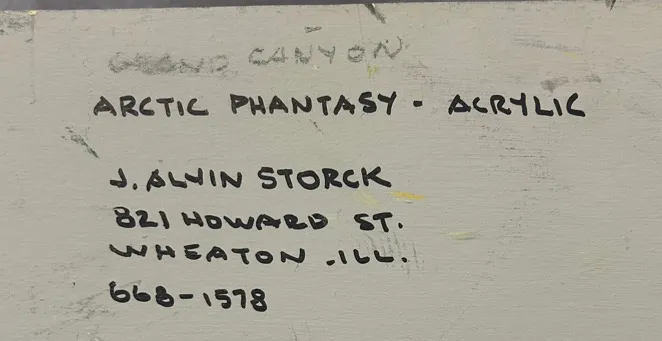 GRAND CANYON
ARCTIC PHANTASY - ACRYLIC
J. ALVIN STORCK
821 HOWARD ST.
WHEATON .ILL.
668-1578